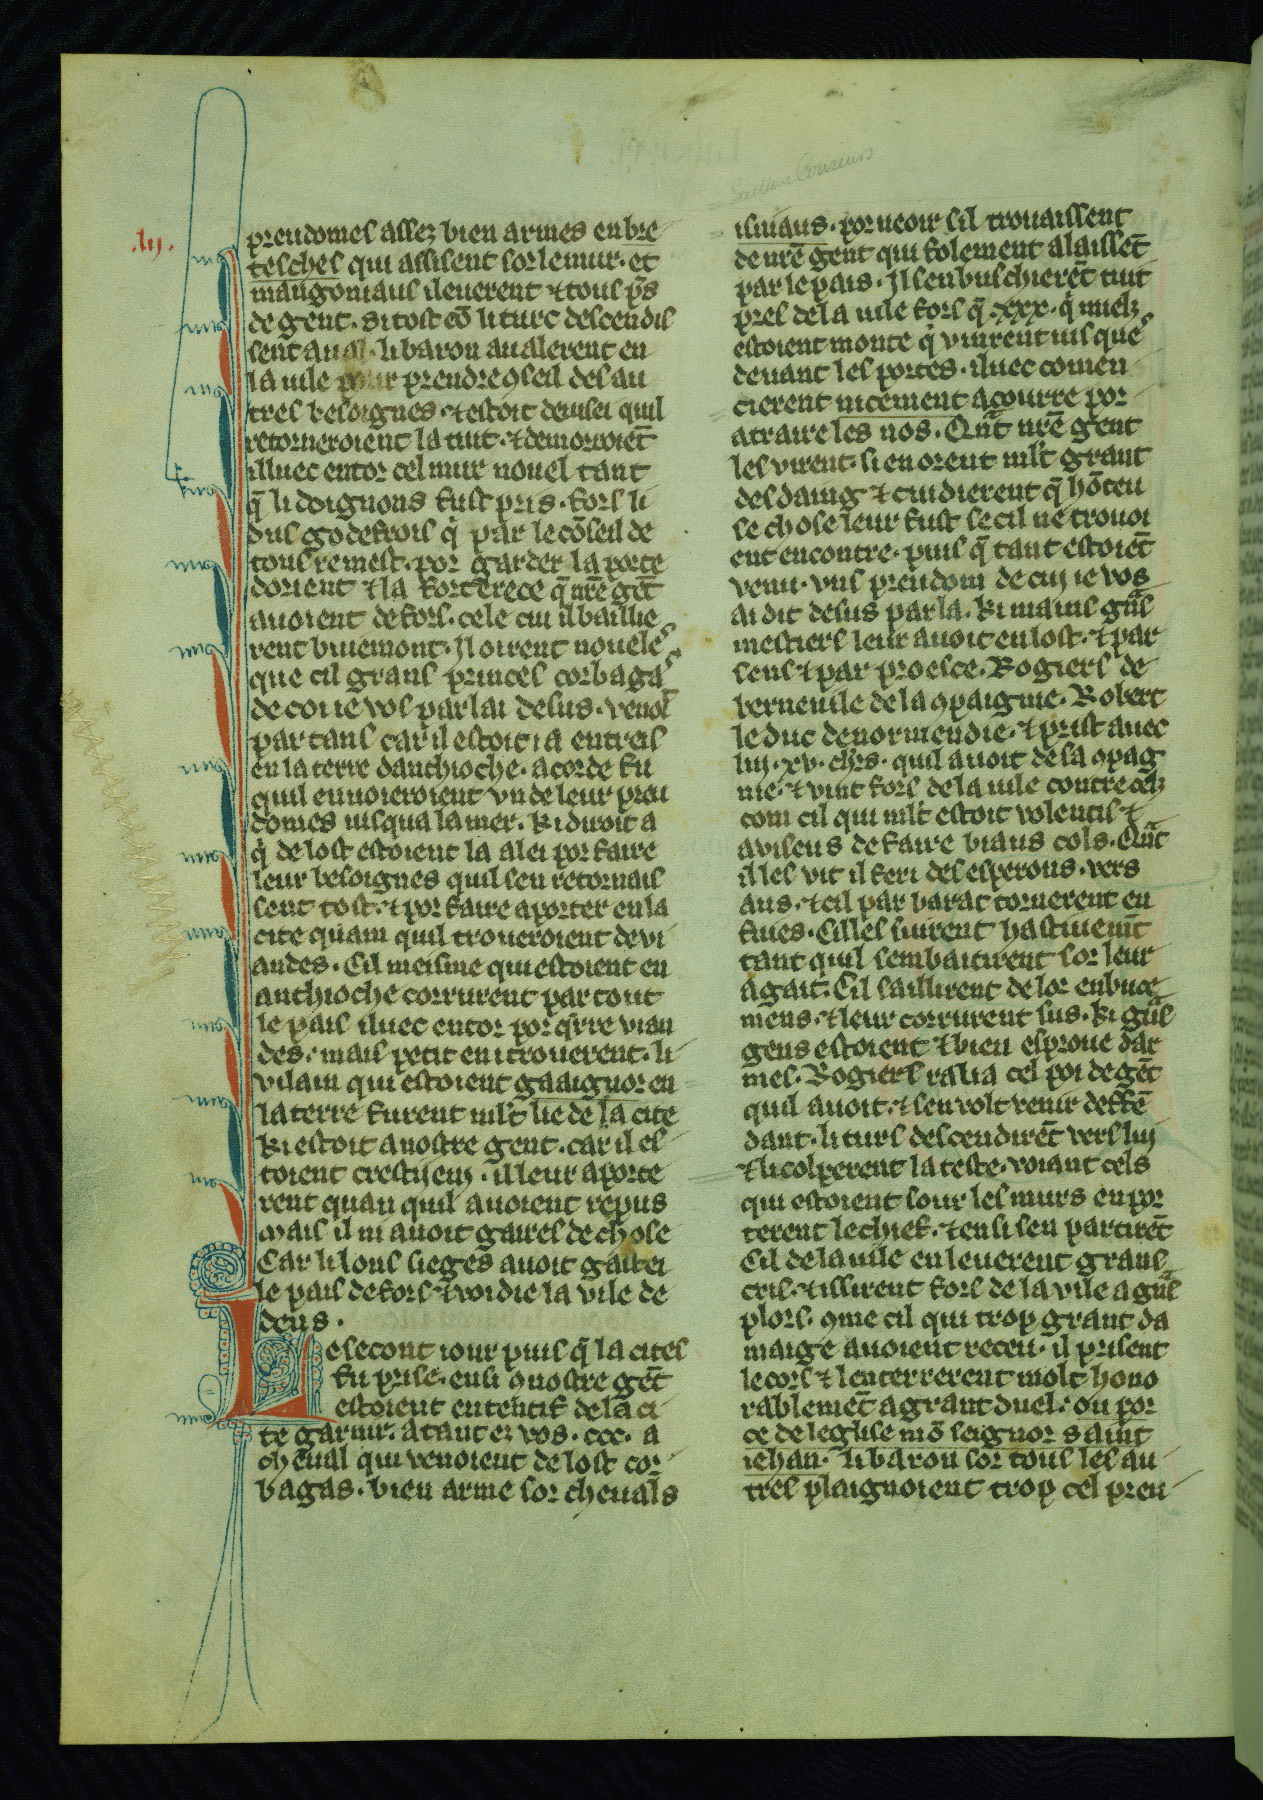 .lij.
preudomes assez bien armes en bre
tesches qui assisent sor le mur. et
mangoniaus i leuerent ⁊ tous p̄s
de gent. si tost cō li turc descendis
sent aual. li baron aualerent en
la uile pour prendre ꝯseil des au
tres besoignes. ⁊ estoit deuisei quil
retorneroient la tuit. ⁊ demorroiēt
illuec entor cel mur nouel tant
q̄ li doignons fust pris. fors li
dus godefrois q̇ par le cōseil de
tous remest. por garder la porte
dorient ⁊ la forterece q̄ nr̄e gēt
auoient defors. cele cui il baillie
rent buiemont. Il oirent noueles
que cil grans princes corbagas
de cou ie vos parlai desus. venoit
par tans car il estoit ia entreis
en la terre danthioche. acorde fu
quil enuoieroient vn de leur preu
domes iusqua la mer. ki diroit a
q̇ de lost estoient la alei por faire
leur besoignes quil sen retornais
sent tost. ⁊ por faire aporter en la
cite quam quil troueroient de vi
andes. Cil meisme qui estoient en
anthioche corrurent par tout
le pais iluec entor por q̄rre vian
des. mais petit en i trouerent. li
vilain qui estoient gaaignor en
la terre furent ml't lie de la cite
ki estoit a nostre gent. car il es
toient crestijen. il leur aporte
rent quan quil auoient repus
mais il ni auoit gaires de chose
Car li lons sieges auoit gastei
le pais defors ⁊ voidie la vile de
dens.
Le secont iour puis q̄ la cites
fu prise. ensi ꝯ nostre gēt
estoient ententif de la ci
te garnir. atant ez vos. ccc. a
cheual qui venoient de lost cor
bagas. bien arme sor cheuals
isniaus. por ueoir sil trouaissent
de nr̄e gent qui folement alaissēt
par le pais. Il sen buschierēt tuit
pres de la uile fors q̄. xxx. q̇ miels
estoient monte q̇ vinrent iusques
deuant les portes. iluec comen
cierent nicement a courre por
atraire les nos. Qn̄t nr̄e gent
les virent. si en orent ml't grant
desdaing ⁊ cuidierent q̄ hōteu
se chose leur fust se cil ne trouoi
ent encontre. puis q̄ tant estoiēt
venu. vns preudom de cuj ie vos
ai dit desus parla. ki mains grās
mestiers leur auoit en lost. ⁊ par
sens ⁊ par proesce. Rogiers de
berneuile de la ꝯpaignie. Robert
le duc de normendie. ⁊ prist auec
luj. xv. ch'rs. quil auoit de sa ꝯpag
nie. ⁊ vint fors de la uile contre cels
com cil qui ml't estoit volentis ⁊
aviseus de faire biaus cols. Qn̄t
il les vit il feri des esperons. vers
aus. ⁊ cil par barat tornerent en
fuies. Cil les siuirent hastiuemt̄
tant quil sembatirent sor leur
agait. Cil saillirent de lor enbuce
mens. ⁊ leur corrurent sus. ki grās
gens estoient ⁊ bien esproue dar
mes. Rogiers ralia cel poi de gēt
quil auoit. ⁊ sen volt venir deffē
dant. li turs descendirēt vers luj
⁊ li colperent la teste. voiant cels
qui estoient sour les murs en por
terent le chief. ⁊ ensi sen partirēt
Cil de la uile en leuerent grans
cris. ⁊ issirent fors de la vile a grās
plors. ꝯme cil qui trop grant da
maige auoient receu. il prisent
le cors ⁊ lenterrerent molt hono
rablemēt a grant duel. ou por
ce de leglise mō seignor saint
iehan. li baron sor tous les au
tres plaignoient trop cel preu